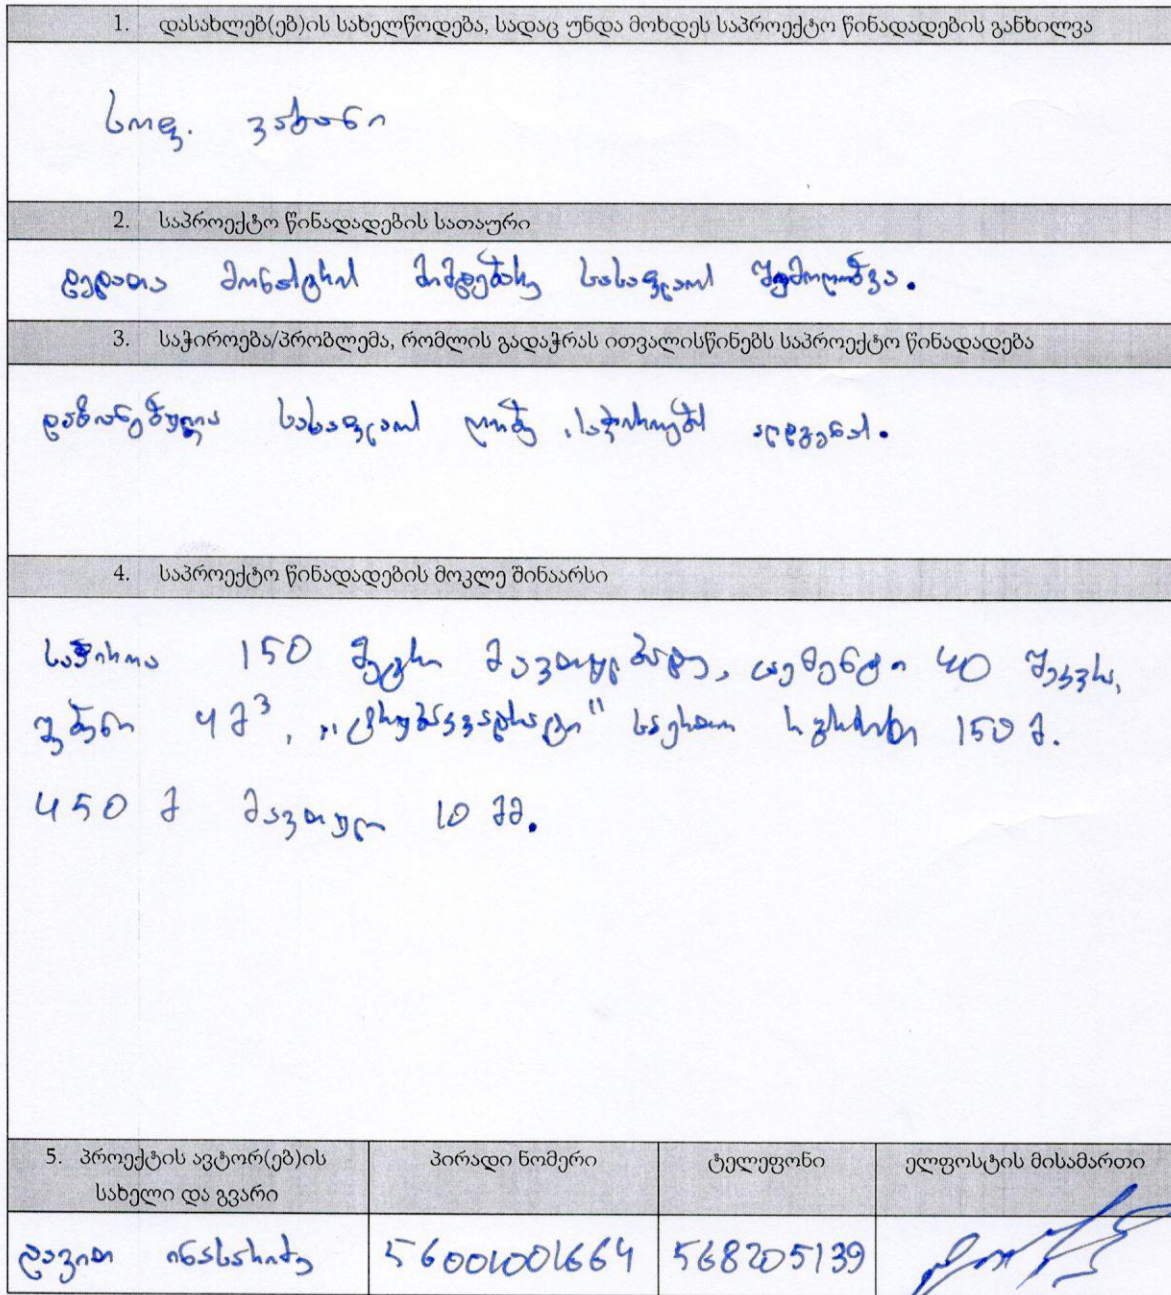 1. დასახლებ(ებ)ის სახელწოდება, სადაც უნდა მოხდეს საპროექტო წინადადების განხილვა
სოფ. ვახანი
2. საპროექტო წინადადების სათაური
დედათა მონასტრის მიმდებარე სასაფლაოს შემოღობვა.
3. საჭიროება/პრობლემა, რომლის გადაჭრას ითვალისწინებს საპროექტო წინადადება
დაზიანებულია სასაფლაოს ღობე, საჭიროებს აღდგენას.
4. საპროექტო წინადადების მოკლე შინაარსი
საჭიროა 150 მეტრი მავთულბადე, ცემენტი 40 შეკვრა,
4მ³, „ტრუბაკვადრატი" საერთო სიგრძით 150 მ.
450 მ მავთულ 10 მმ.
5. პროექტის ავტორ(ებ)ის სახელი და გვარი
პირადი ნომერი
ტელეფონი
ელფოსტის მისამართი
დავით ინასარიძე 56001001664 568205139